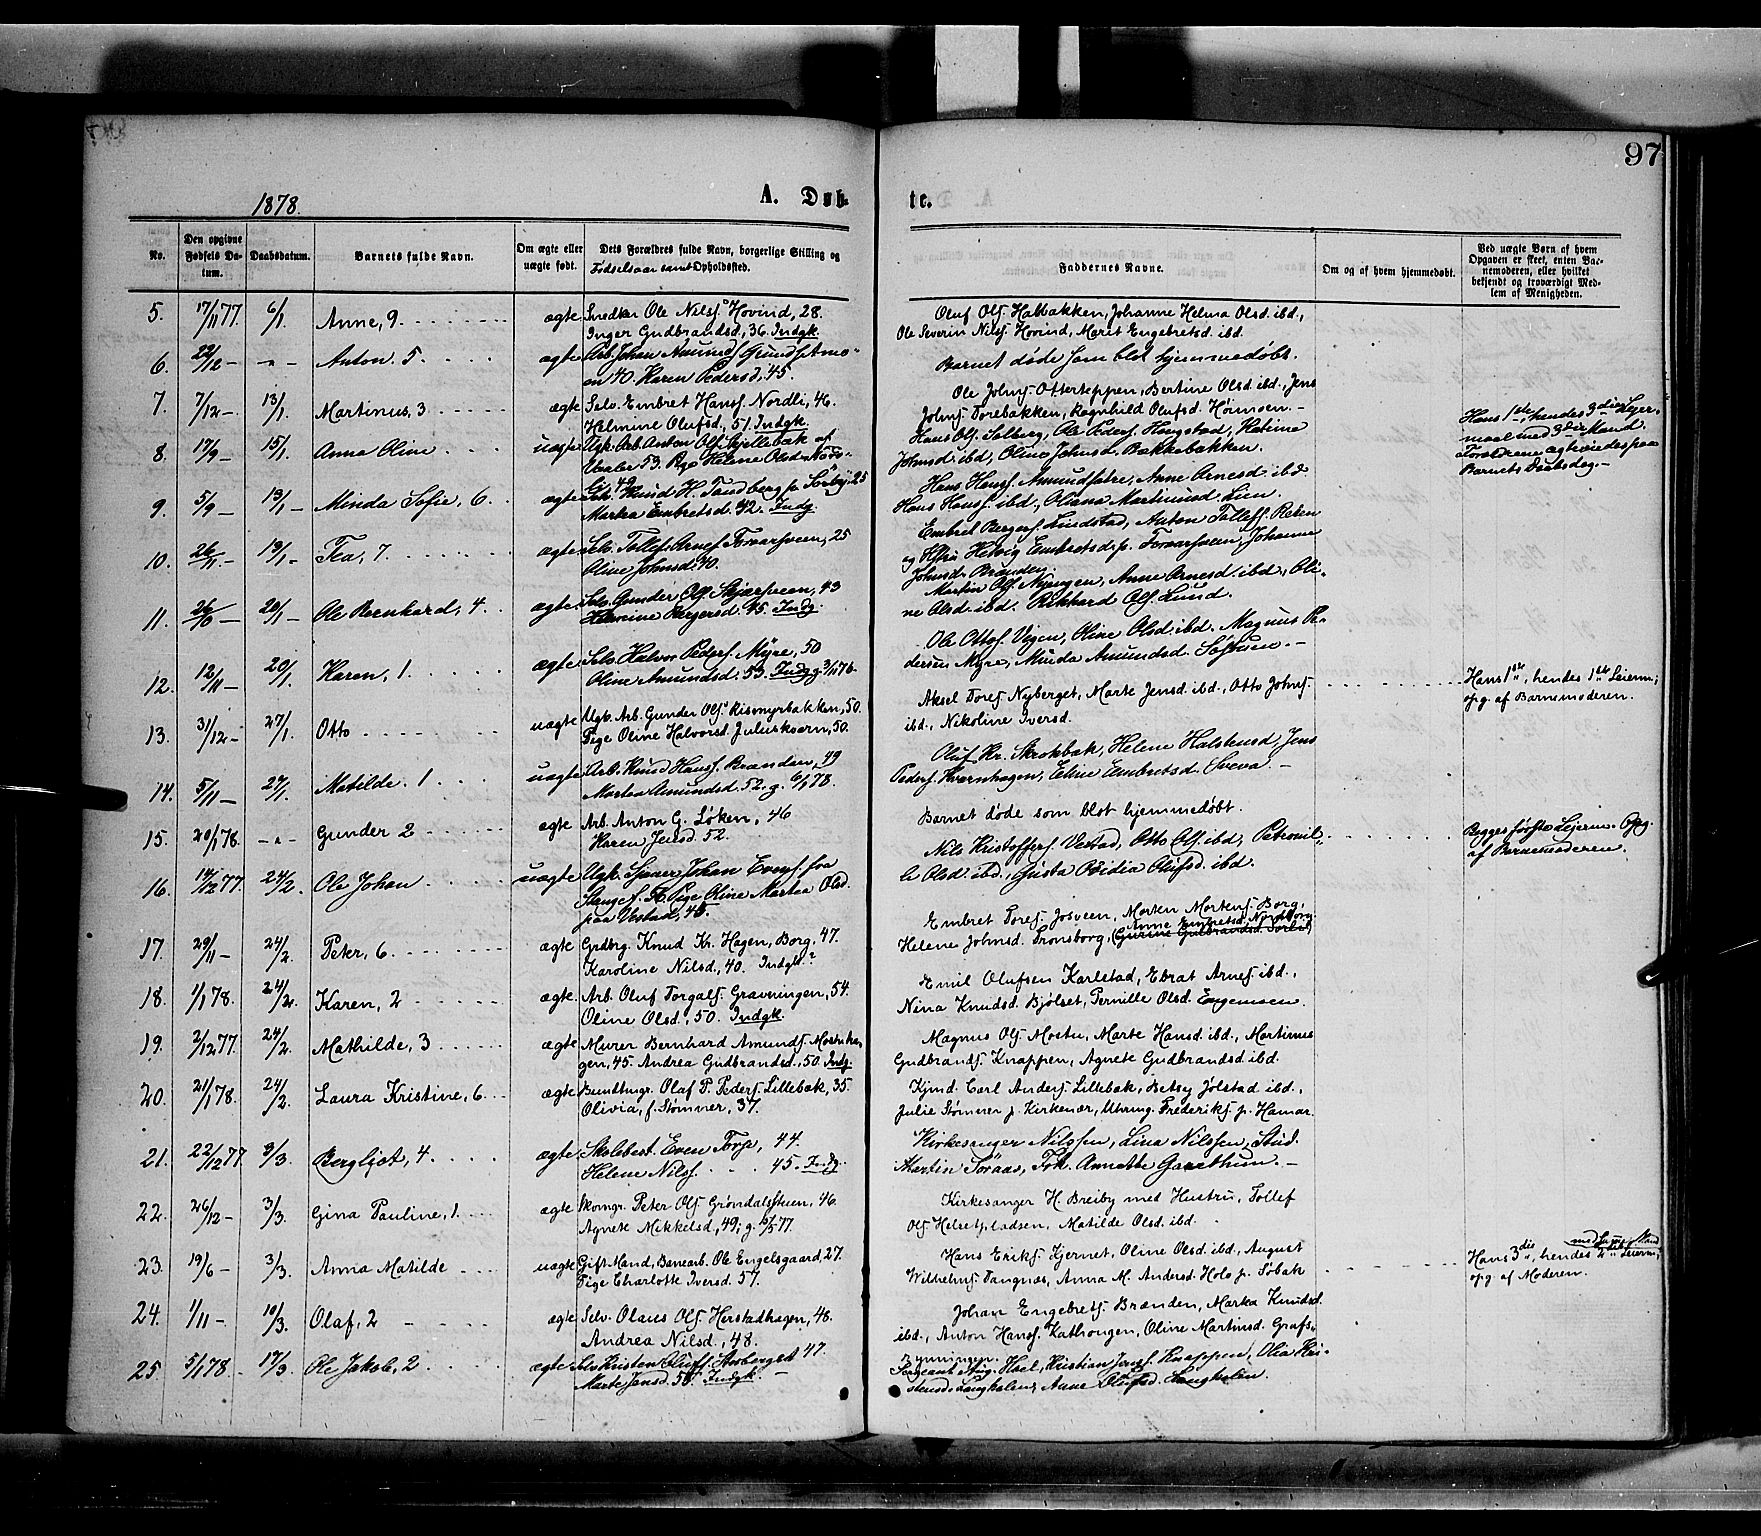 97
1878.
A. Døb-
te.
No.
Den opgivne
Fødsels Da-
tum.
Daabsdatum.
Barnets fulde Navn.
Om ægte eller
uægte født.
Dets Forældres fulde Navn, borgerlige Stilling og
Fødselsaar samt Opholdssted.
Faddernes Navne.
Om og af hvem hjemmedøbt.
Ved uægte Børn af hvem
Opgaven er skeet, enten Bar-
nemoderen, eller hvilket
bekjendt og troværdigt Med-
lem af Menigheden.
5. 17/11 77. 6/1. Anne, 9. ægte Snedker Ole Nilss. Hovind, 28.
Inger Gudbrandsd., 36. Indgk.
Oluf Ols. Halbakken, Johanne Helma Olsd. ibd.,
Ole Severin Nilss. Hovind, Maret Engebretsd. ibd.
6. 22/12 – -"- Anton, 5. ægte Arb. Johan Amunds. Grundsetmo-
en 40. Karen Pedersd., 45.
Barnet døde som blot hjemmedøbt.
7. 7/12 –. 13/1. Martinus, 3 ægte Selv. Embret Hanss. Nordli, 46.
Helmine Olufsd., 51. Indgk.
Ole Johns. Otterteppen, Bertine Olsd. ibd., Jens
Johns. Torebakken, Ragnhild Olufsd.
8. 17/9 – 15/1. Anna Oline uægte Ugk. Arb. Anton Ols. Gjillebæk af
Vaaler 53. Pge Helene Olsd.
Hans Ols. Solberg, Ole Peders. Haugstad, Katrine
Johnsd. ibd., Oline Johnsd. Bakkebakken.
Hans 1ste, hendes 3die Leier-
maal med 3die Mand.
Forældrene ægteviedes paa
Barnets Daabsdag. –
9. 5/9 – 13/1 – Minda Sofie, 6. ægte Selv. Knud H. Sandberg p. Sørby, 25
Martea Embretsd. 42. Indg.
Hans Hanss. Amundsætre, Anne Arnesd. ibd.
Hans Hanss. ibd., Oliana Martinusd. Lien.
10. 26/11 – 19/1 – Tea, 7. ægte Selv. Tollef Arnes. Torvarsveen, 25
Oline Johnsd. 40.
Embret Bergers. Lindstad, Anton Tollefs.
og Hstru Helvig Embretsd. p. Torvarsveen, Johanne
Johnsd. Brænden.
11. 26/10 – 20/1 – Ole Bernhard, 4. ægte Selv. Gunder Ols. Skjærsveen, 43
Helmine Bergersd. 45. Indg.
Martin Ols. Nyengen, Anne Arnesd. ibd., Oli-
ne Olsd. ibd. Rikhard Ols. Lund.
12. 12/11 – 20/1. Karen, 1. ægte Selv. Halvor Peders. Myre, 50
Oline Amundsd. 53. Indg. g. 3/11 76.
Ole Ottos. Vigen, Oline Olsd. ibd. Magnus Pe-
dersen Myre, Minda Amundsd.
13. 31/12 – 27/1. Otto uægte Ugk. Arb. Gunder Ols. Rismyrbakken, 50.
Pige Oline Halvorsd. Juliuskværn, 50.
Aksel Tores. Nyberget, Marte Jensd. ibd., Otto Johns.
ibd., Nikoline Iversd.
Hans 1ste, hendes 1ste Leierm.;
opg. af Barnemoderen.
14. 5/11 – 27/1. Matilde. 1 uægte Arb. Knud Hanss. Brænden, 49
Martea Amundsd. 52. g. 6/1 78.
Oluf Kr. Skrokbæk, Helene Halstensd., Jens
Peders. Kværnhagen, Eline Embretsd. Sveva. –
15. 20/1 78. -"- Gunder 2 ægte Arb. Anton G. Løken, 46
Karen Jensd. 52.
Barnet døde som blot hjemmedøbt.
16. 14/12 77. 24/2. Ole Johan uægte Ugk. Johan Evens. fra
Stange f. Pige Oline Martea Olsd.
paa Vestad, 45.
Nils Kristoffers. Vestad, Otto Ols. ibd., Petronil-
le Olsd. ibd., Gusta Obidia Olufsd. ibd.
Begges første Leierm. Opg.
af Barnemoderen.
17. 29/11 – 24/2. Peter, 6. ægte Grdbrg. Knud Kr. Hagen, Borg, 47.
Karoline Nilsd., 40. Indgk.
Embret Tores. Josveen, Morten Mortens. Borg,
Anne Embretsd. Nordborg.
Helene Johnsd. Tronsborg, (Gurine Gulbrandsd.
18. 1/1 78. 24/2. Karen, 2 ægte Arb. Oluf Torgals. Gravningen, 54.
Oline Olsd., 50. Indgk.
Emil Olufsen Karlstad, Ebrat Arnes. ibd.,
Nina Knudsd. Bjølset, Pernille Olsd. Engemoen.
19. 2/12 77. 24/2. Mathilde, 3 ægte Murer Bernhard Amunds. Mostuha-
gen, 45. Andrea Gudbrandsd., 50 Indg.
Magnus Ols. Mostu, Marte Hansd. ibd., Martinus
Gudbrands. Knappen, Agnete Gudbrandsd. ibd.
20. 21/1 78. 24/2. Laura Kristine, 6 ægte Buntmgr. Olaf P. Peders. Lillebæk, 35.
Olivia, f. Stømner, 37.
Kjmd. Carl Anders. Lillebæk, Betsy Jølstad ibd.,
Julie Stømner p. Kirkenær, Uhrmg. Frederiks. p. Hamar.
21. 22/12 77 3/3. Bergljot, 4. ægte Skolebest. Even Torge, 44.
Helene Nilss. 45. Indg.
Kirkesanger Nilssen, Lina Nilssen, Stud.
Martin Søraas, Frk. Annette Garethun. –
22. 26/12 – 3/3. Gina Pauline, 1. ægte Skomgr. Peter Ols. Grøndalssteen, 46.
Agnete Mikkelsd., 49; g. 6/5 77.
Kirkesanger H. Breiby med Hustru, Tollef
Ols. Helsetpladsen, Matilde Olsd. ibd.
23. 19/6 – 3/3. Anna Matilde uægte Gift Mand, Banearb. Ole Engelsgaard, 27.
Pige Charlotte Iversd. 57.
Hans Eriks. Kjernet, Oline Olsd. ibd., August
Wilhelms. Tangnæs, Anna M. Andersd. Holo p. Søbak
Hans 3die, hendes 2det Leierm.;
med samme Mand
opg. af Moderen.
24. 1/11 – 10/3. Olaf, 2 ægte Selv. Olaus Ols. Herstadhagen, 48.
Andrea Nilsd., 48.
Johan Engebrets. Brænden, Marka Knudsd.
ibd., Anton Hanss. Kathaugen, Oline Martinsd. Grafs-
rynningen.
25. 5/1 78. 17/3. Ole Jakob, 2 ægte Selv. Kristen Olufs. Aasberget 47.
Marte Jensd. 50. Indgk.
Sergeant Aug. Hoel, Kristian Jens. Knappen, Olia Kri-
stensd. Langholen, Anne Olufsd. Langholen.